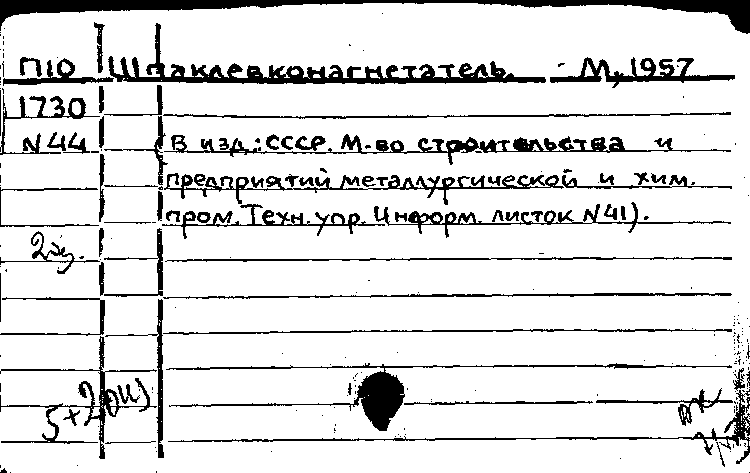 П10 Шпаклевконагнетатель. - М, 1957
1730
N 44 (В изд.: СССР. М-во строительства и
предприятий металлургической и хим.
пром. Техн. упр. Информ. листок N 41).
2 эз.
5+2